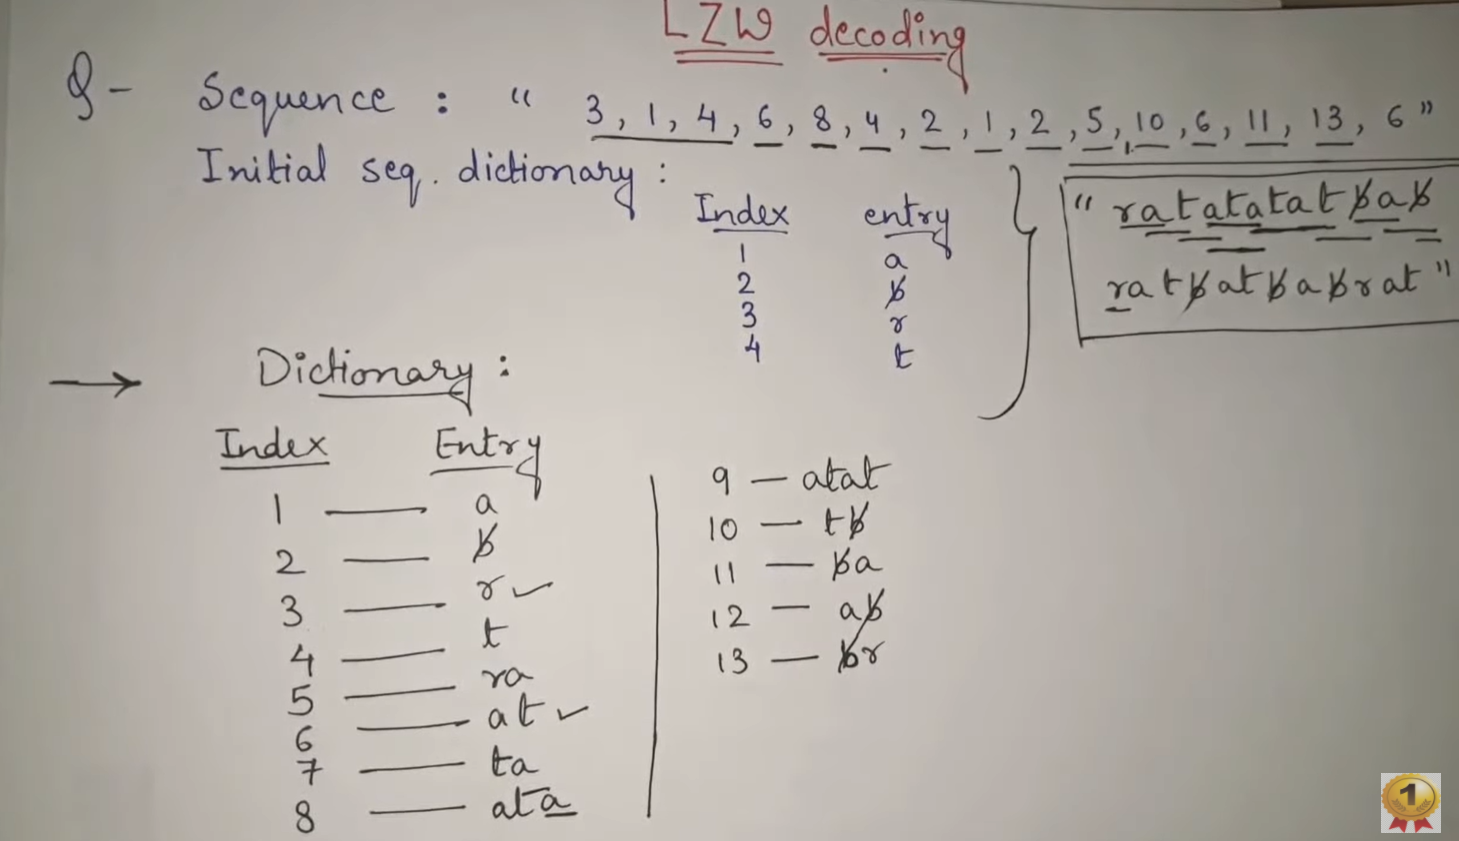 LZW decoding
Q- Sequence : " 3, 1, 4, 6, 8, 4, 2, 1, 2, 5, 10, 6, 11, 13, 6 "
Initial seq. dictionary :
Index entry
1 a
2 ƀ
3 r
4 t
" ratatatatƀaƀ
ratƀatƀaƀrat "
→ Dictionary :
Index Entry
1 — a
2 — ƀ
3 — r ✓
4 — t
5 — ra
6 — at ✓
7 — ta
8 — ata
9 — atat
10 — tƀ
11 — ƀa
12 — aƀ
13 — ƀr
1